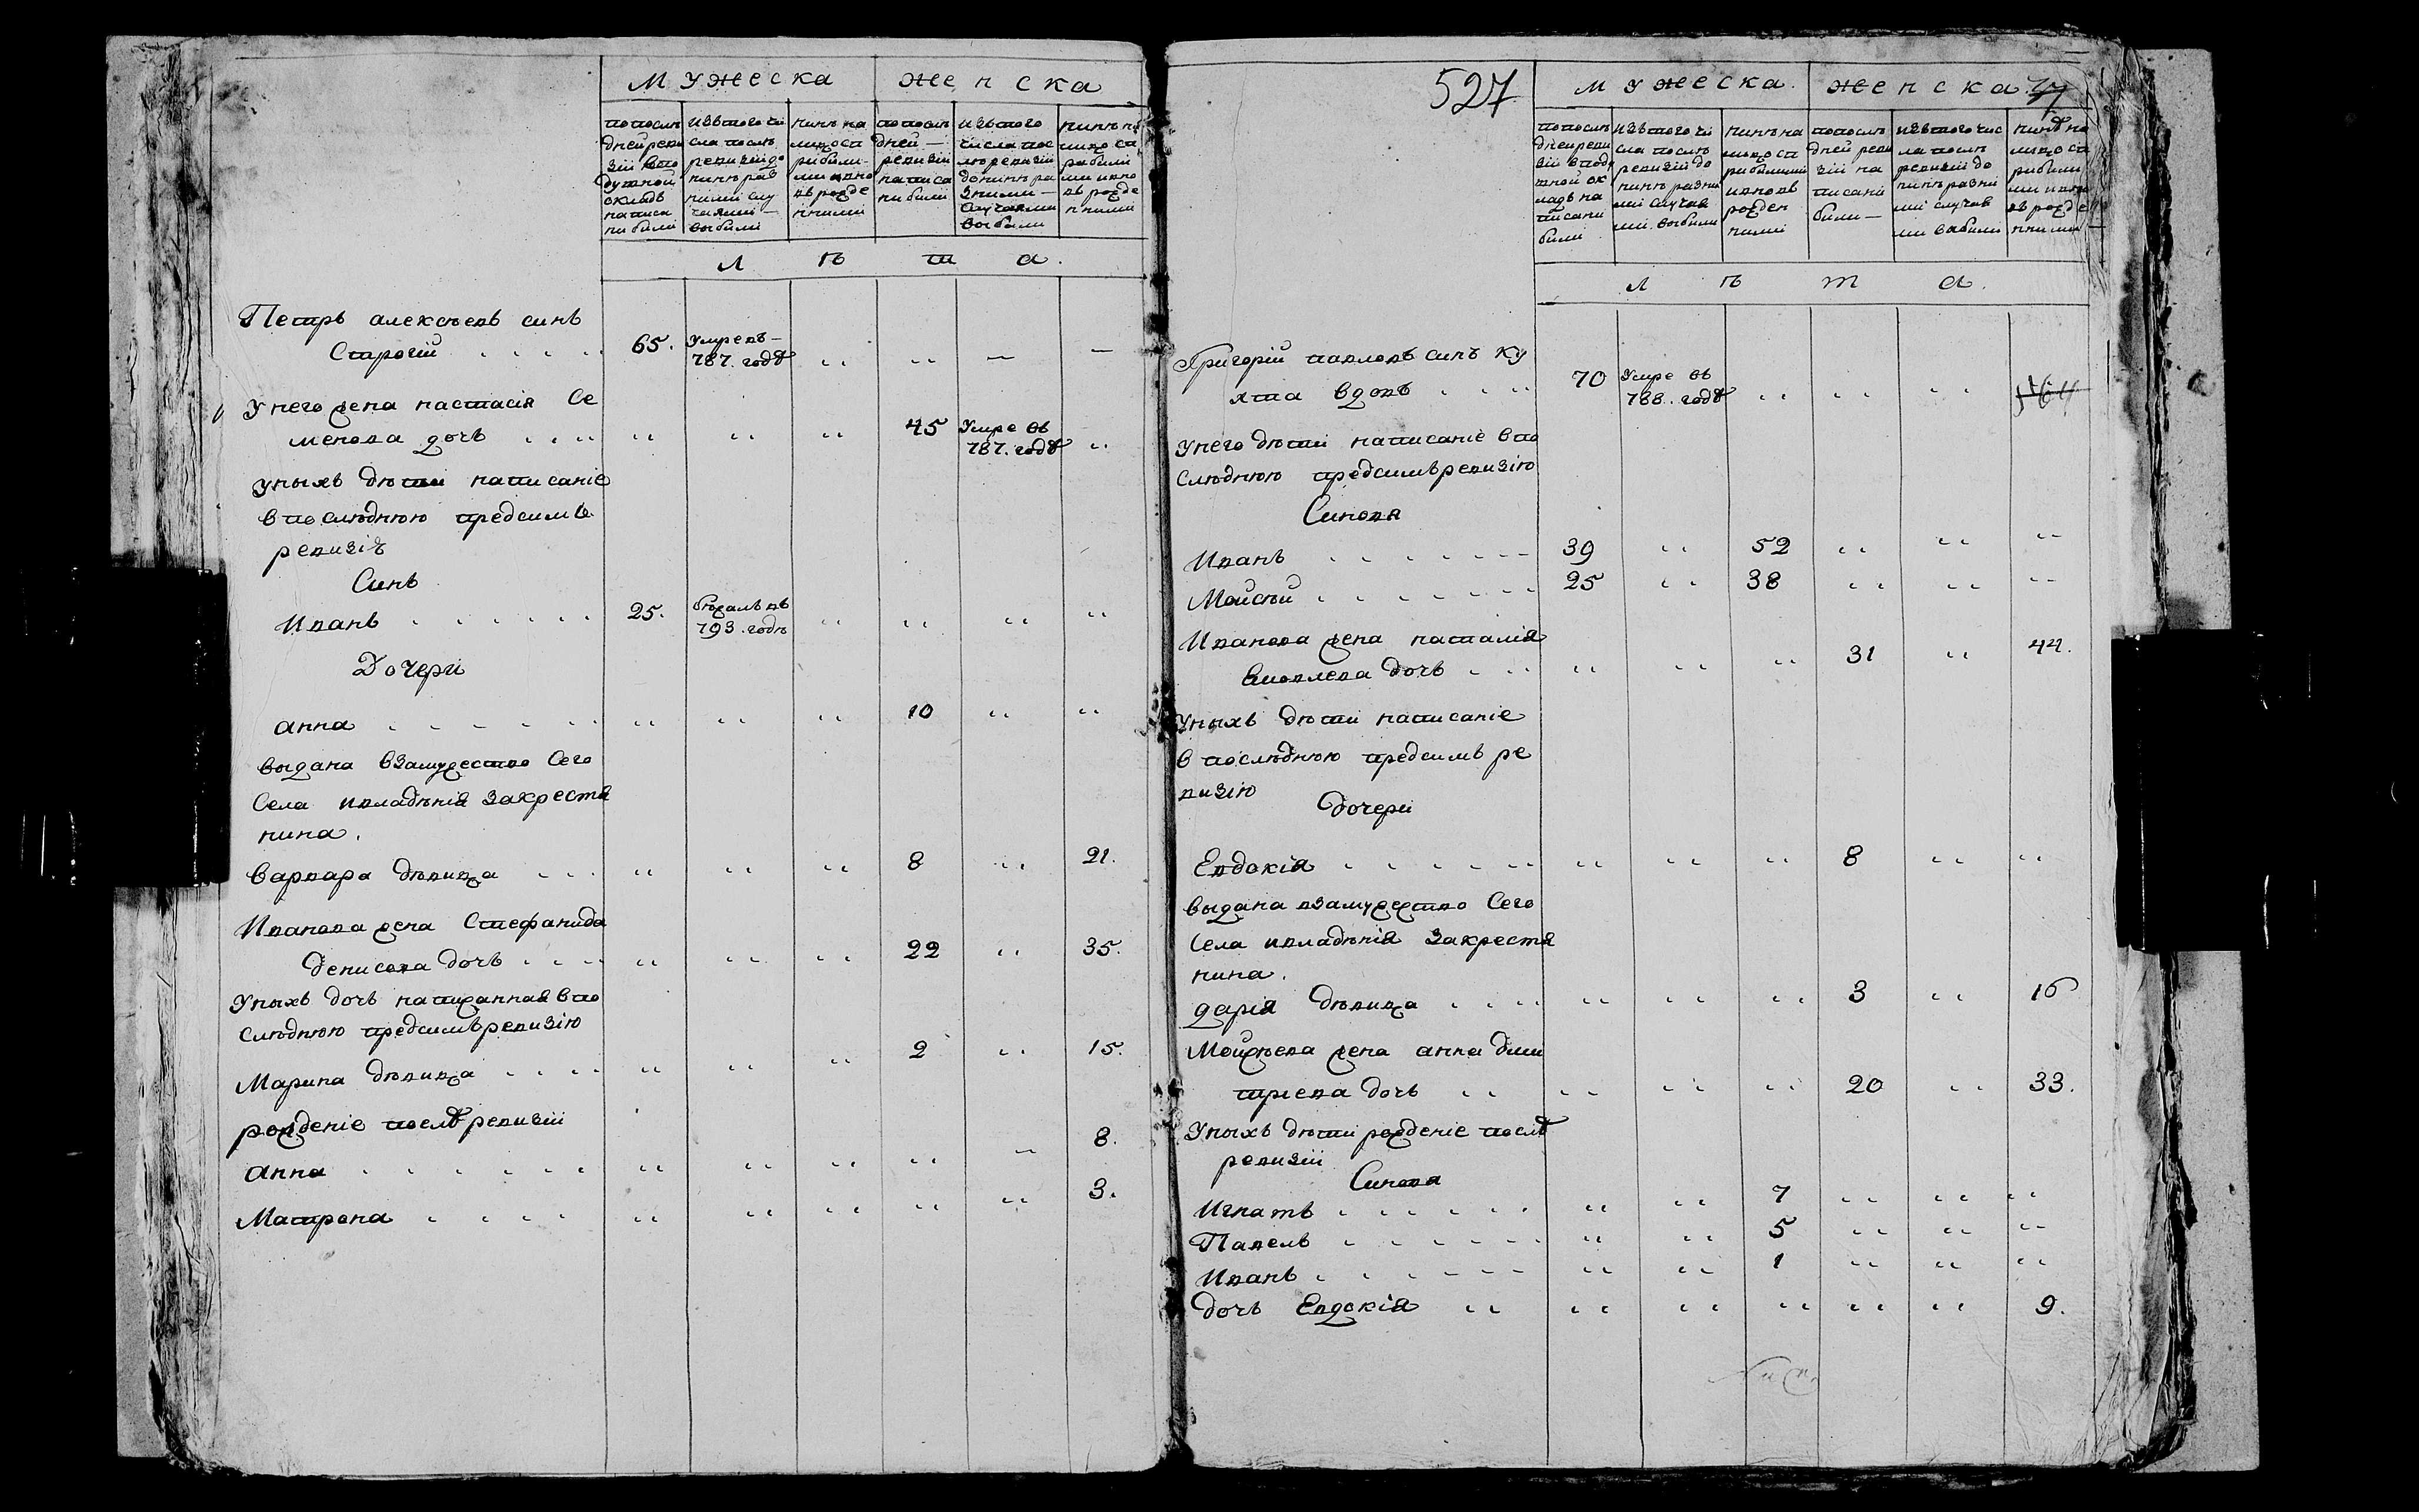 Мужеска женска
попослѣ дней реви зіи впо душной окладъ написа ни били
изътого чи сла послѣ ревизіи до нинѣ раз ними слу чаями выбили
нинѣ на лицо съ рибили ми ивно вь рожде нними
попослѣ дней ревизіи написа ни били
изътого числа пос лю ревизіи донинѣ ра зними случаями выбили
нинѣ на лицо съ рибили ми ивно вь рожде нними
лѣта.
Петръ алексѣевъ синъ
Строгій 65. Умревъ 787. годѣ
Унего жена настасія Се
менова дочь 45 Умре въ 787. годѣ
Унихъ дѣти написаніе
впослѣднюю предсимъ
ревизіѣ
Синъ
Иванъ 25. бѣжалъ въ 793. годѣ
Дочери
анна 10
выдана взамужество Сего
Села ивладѣнія Закрестя
нина.
варвара дѣвица 8 21.
Иванова жена Стефанида
денисова дочь 22 35.
Унихъ дочь написанная впо
слѣднюю предсимъ ревизію
Марина дѣвица 2 15.
рожденіе послѣ ревизіи
анна 8.
Матрона 3.
527
мужеска. женска.
попослѣ дней реви зіи вподу шной ок ладъ на писани били
изътого чи сла послѣ ревизіи до нинѣ разни ми случая ми выбили
нинѣ на лицо съ рибилими ивновь рожден ними
попослѣ дней реви зіи на писани били
изътого чис ла послѣ ревизіи до нинѣ разни ми случая ми выбили
нинѣ на лицо съ рибили ми ивно вь рожде нними
лѣта.
Григорій павловъ синъ Ку
хта вдовъ 70 Умре въ 788. годѣ
Унего дѣти написаніе впо
слѣднюю предсимъ ревизію
Синовя
Иванъ 39 52
Мойсѣй 25 38
Иванова жена наталія
дочь 31 44.
Унихъ дѣти написаніе
в послѣднюю предсимъ ре
визію
дочери
Евдокія 8
выдана взамужество Сего
Села ивладѣнія Закрестя
нина.
дарія дѣвица 3 16
Мойсѣева жена анна дми
тріева дочь 20 33.
Унихъ дѣти рожденіе послѣ
ревизіи
Синовя
Игнатъ 7
Павелъ 5
Иванъ 1
дочь Евдокія 9.